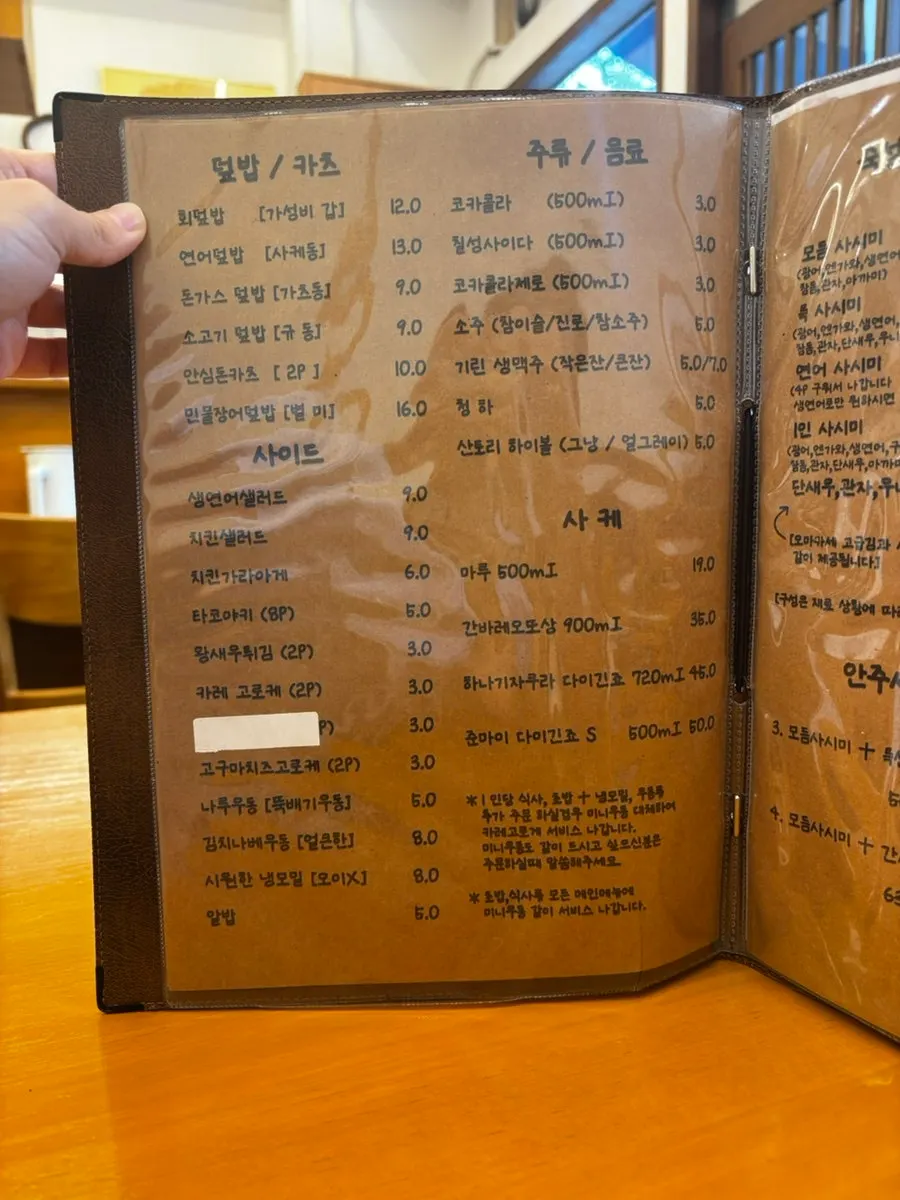 덮밥 / 카츠
회덮밥 [가성비 갑] 12.0
연어덮밥 [사케동] 13.0
돈가스 덮밥 [가츠동] 9.0
소고기 덮밥 [규 동] 9.0
안심돈카츠 [ 2P ] 10.0
민물장어덮밥 [별 미] 16.0
사이드
생연어샐러드 9.0
치킨샐러드 9.0
치킨가라아게 6.0
타코야키 (8P) 5.0
왕새우튀김 (2P) 3.0
카레 고로케 (2P) 3.0
P) 3.0
고구마치즈고로케 (2P) 3.0
나루우동 [뚝배기우동] 5.0
김치나베우동 [얼큰한] 8.0
시원한 냉모밀 [오이X] 8.0
알밥 5.0
주류 / 음료
코카콜라 (500mI) 3.0
칠성사이다 (500mI) 3.0
코카콜라제로 (500mI) 3.0
소주 (참이슬/진로/참소주) 5.0
기린 생맥주 (작은잔/큰잔) 5.0/7.0
청 하 5.0
산토리 하이볼 (그냥 / 얼그레이) 5.0
사 케
마루 500mI 19.0
간바레오또상 900mI 35.0
하나기자쿠라 다이긴죠 720mI 45.0
준마이 다이긴죠 S 500mI 50.0
* 1 인당 식사, 초밥 + 냉모밀, 우동를
추가 주문 하실경우 미니우동 대체하여
카레고로케 서비스 나갑니다.
미니우동도 같이 드시고 싶으신분은
주문하실때 말씀해주세요.
* 초밥,식사류 모든 메인메뉴에
미니우동 같이 서비스 나갑니다.
모듬 사시미
(광어,엔가와,생연어
참돔,관자,아까미)
특 사시미
(광어,엔가와,생연어,
참돔,관자,단새우,우니
연어 사시미
(4P 구워서 나갑니다
생연어로만 원하시면
1인 사시미
(광어,엔가와,생연어,구
참돔,관자,단새우,아까미
단새우,관자,우니
[오마카세 고급김과
같이 제공됩니다]
[구성은 재료 상황에 따라
안주
3. 모듬사시미 +
4. 모듬사시미 + 간